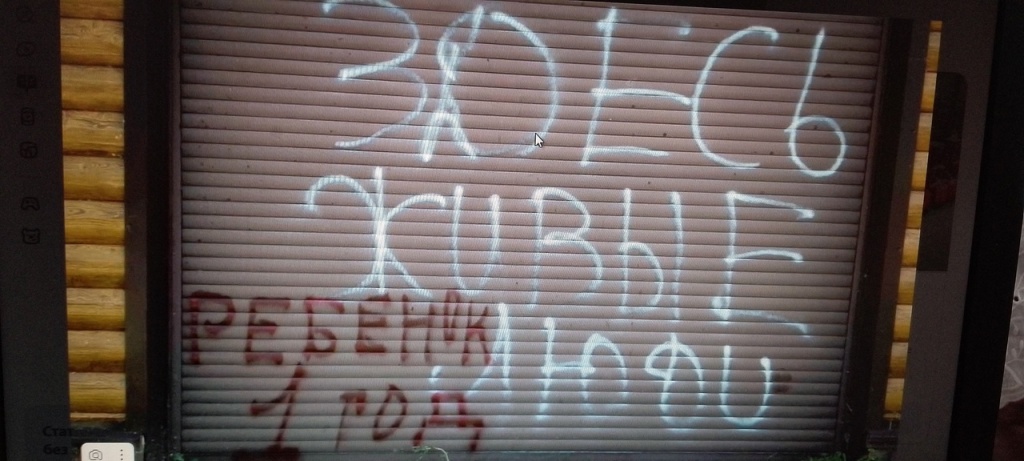 ЗДЕСЬ
ЖИВЫЕ
ЛЮДИ
РЕБЕНОК
1 ГОД